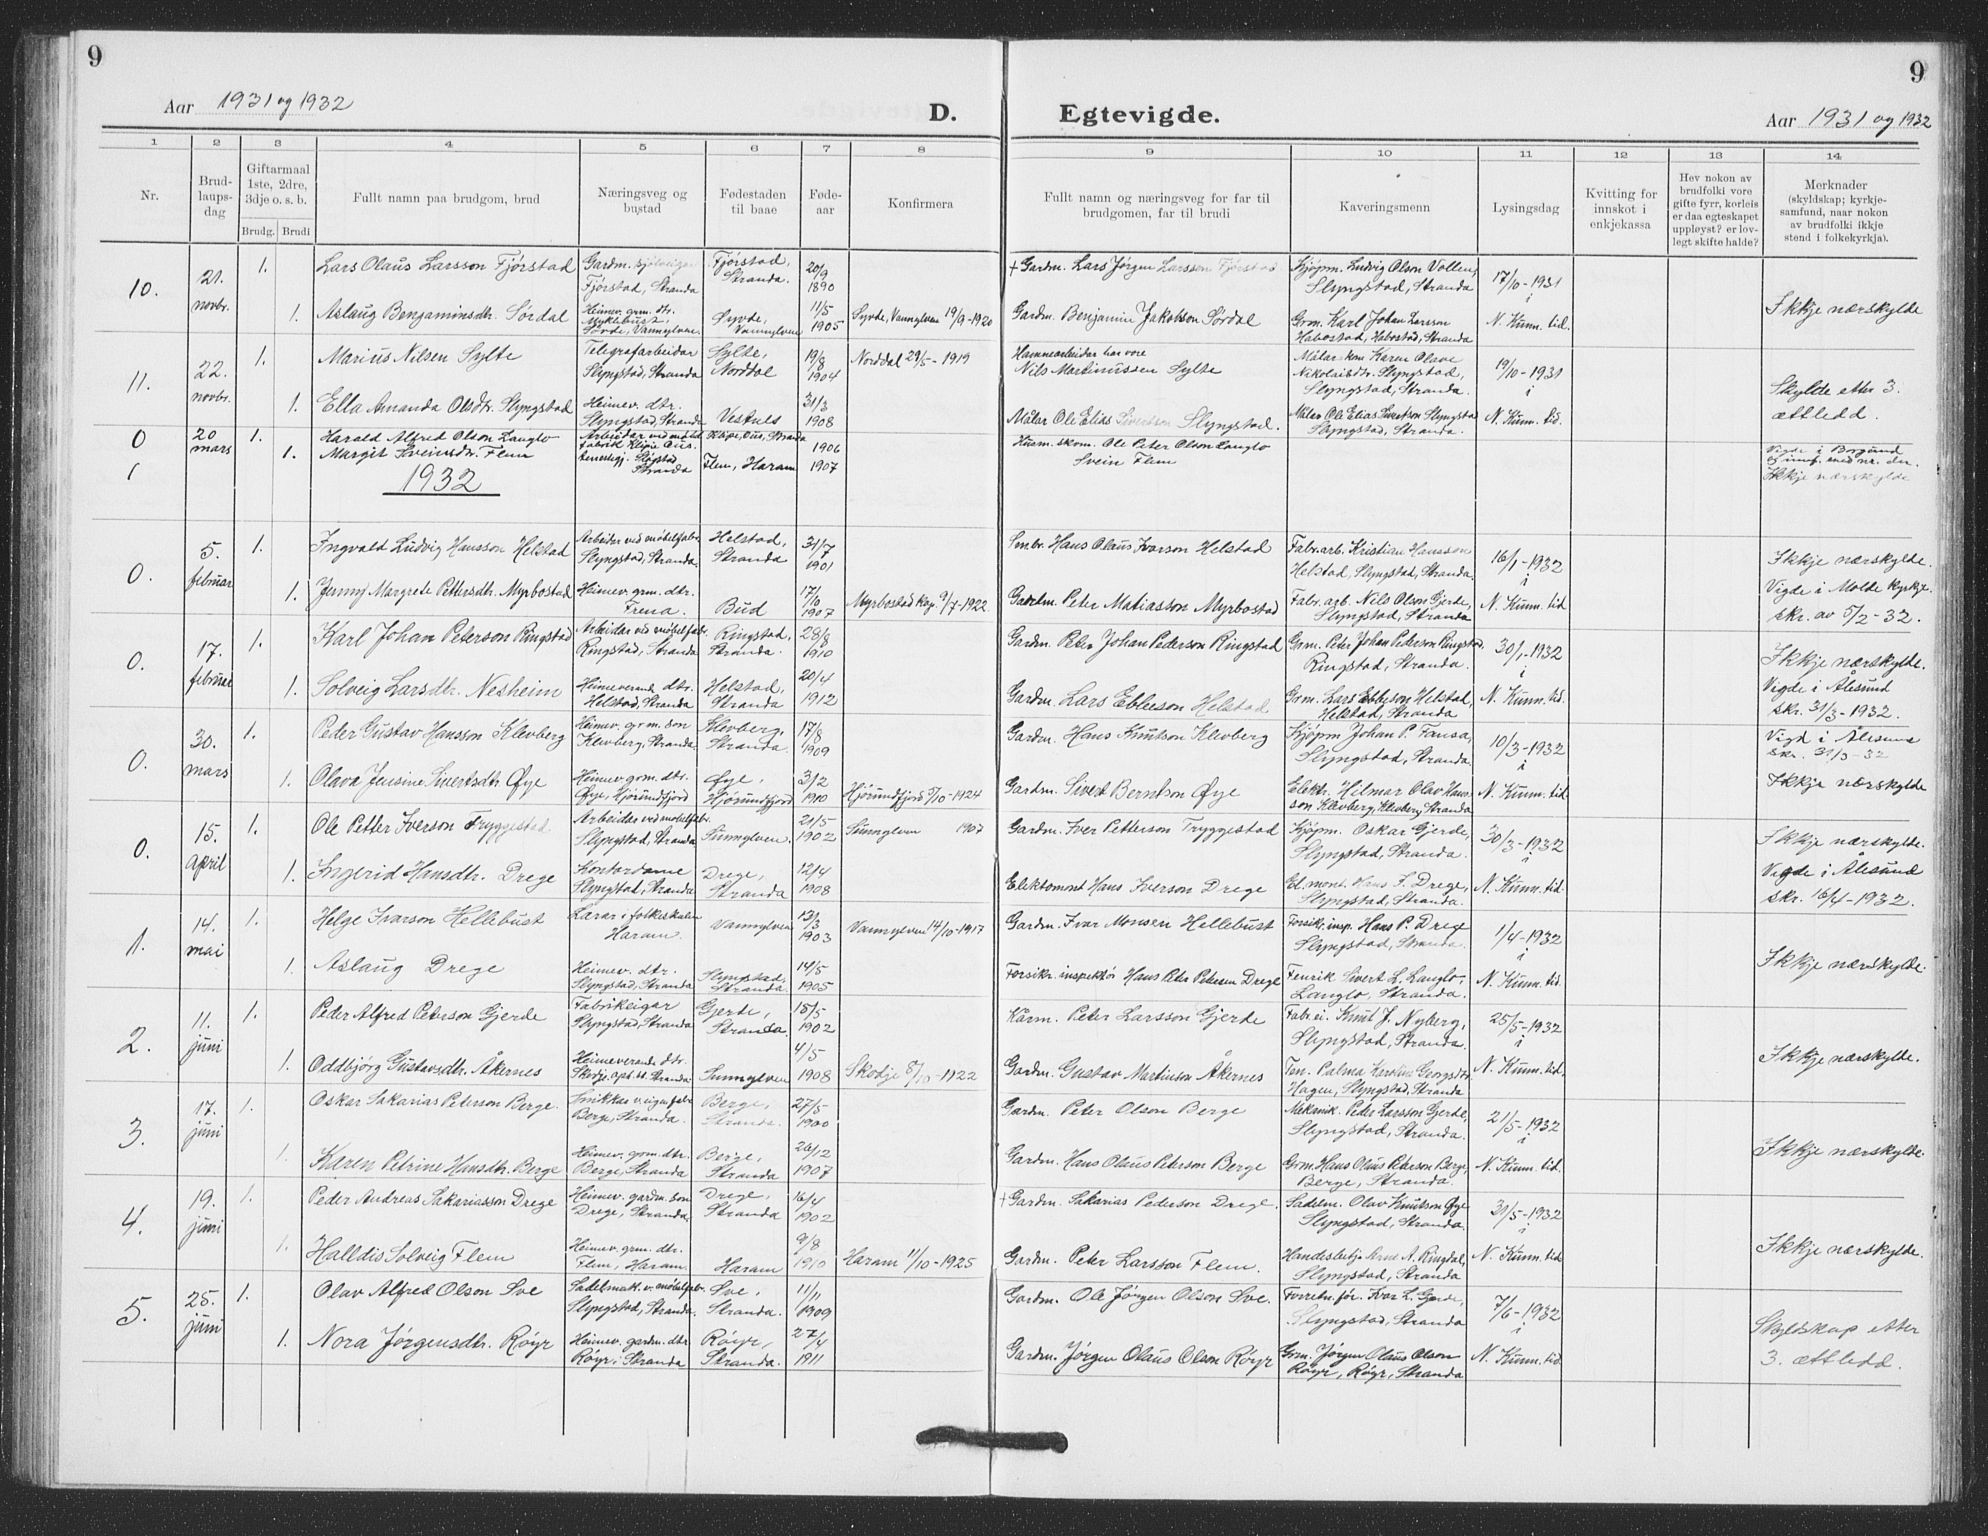 9
9
Aar 1931 og 1932
D. Egtevigde.
Aar 1931 og 1932
1 2 3 4 5 6 7 8 9 10 11 12 13 14
Nr.
Brud-
laups-
dag
Giftarmaal
1ste, 2dre,
3dje o. s. b.
Brudg. Brudi
Fullt namn paa brudgom, brud
Næringsveg og
bustad
Fødestaden
til baae
Føde-
aar
Konfirmera
Fullt namn og næringsveg for far til
brudgomen, far til brudi
Kaveringsmenn
Lysingsdag
Kvitting for
innskot i
enkjekassa
Hev nokon av
brudfolki vore
gifte fyrr, korleis
er daa egteskapet
uppløyst? er lov-
legt skifte halde?
Merknader
(skyldskap; kyrkje-
samfund, naar nokon
av brudfolki ikkje
stend i folkekyrkja).
10. 21. novbr.
1. Lars Olaus Larsson Fjørstad
Gardm.
Fjørstad, Stranda
Fjørstad,
Stranda.
20/9
1890
+ Gardm. Lars Jørgen Larsson Fjørstad
Kjøpm. Ludvig Olson Vollen,
Slyngstad, Stranda
17/10-1931
1. Aslaug Benjaminsdtr. Sørdal
Heimev. grm. dtr.
Syvde, Vannylven.
Syvde,
Vannylven
11/5
1905
Syvde, Vannylven 19/9-1920
Gardm. Benjamin Jakobson Sørdal
Grm. Karl Johan Larsson
Habostad, Habostad, Stranda
N. Kunn. tid.
Ikkje nærskylde
11. 22. novbr.
1. Marius Nilsen Sylte
Telegrafarbeidar
Slyngstad, Stranda
Sylte,
Norddal
19/8
1904
Norddal 29/5-1919
Hamnearbeidar har vore
Nils Martinussen Sylte
Målar-kona Karen Olave
Nikolaisdtr. Slyngstad,
Slyngstad, Stranda.
19/10-1931
i
1. Ella Amanda Olsdtr. Slyngstad
Heimev. dtr.
Slyngstad, Stranda
Vestnes
31/3
1908
Målar Ole Elias Sivertson Slyngstad.
Målar Ole Elias Sivertson Slyngstad
Slyngstad, Stranda.
N. Kunn. tid.
Skylde etter 3.
ættledd.
0 20 mars
1. Harald Alfred Olson Langlo
Arbeidar ved møbel
fabrik
1906
Husm. skom. Ole Peter Olson Langlo
1. Margit Sveinsdtr. Flem
Stranda
Flem, Haram
1907
Svein Flem
Vigde i Borgund
Ikkje nærskylde
1932
0. 5. februar
1. Ingvald Ludvig Hansson Helstad
Arbeidar ved møbelfabr.
Slyngstad, Stranda.
Helstad,
Stranda
31/7
1901
Smbr. Hans Olaus Ivarson Helstad
Fabr.arb. Kristian Hansson
Helstad, Slyngstad, Stranda.
16/1-1932
i
1. Jenny Margrete Pettersdtr. Myrbostad
Heimev. grm. dtr.
Frena.
Bud
17/10
1907
Myrbostad kap. 9/7-1922
Gardm. Peter Matiasson Myrbostad
Fabr. arb. Nils Olson Gjerde,
Slyngstad, Stranda
N. Kunn. tid
Ikkje nærskylde.
Vigde i Molde kyrkje.
skr. av 5/2-32.
0. 17. februar
1. Karl Johan Peterson Ringstad
Arbeidar ved møbelfabr.
Ringstad, Stranda
Ringstad,
Stranda.
28/8
1910
Gardm. Peter Johan Pederson Ringstad
Grm. Peter Johan Pederson Ringstad
Ringstad, Stranda.
30/1-1932
i
1. Solveig Larsdtr. Nesheim
Heimeverande dtr.
Helstad, Stranda
Helstad,
Stranda
20/4
1912
Gardm. Lars Ebbeson Helstad
Grm. Lars Ebbeson Helstad,
Helstad, Stranda
N. Kunn. tid.
Ikkje nærskylde.
Vigde i Ålesund
skr. 31/3-1932.
0. 30. mars
1. Peder Gustav Hansson Klevberg
Heimev. grm. son
Klevberg, Stranda.
Klevberg,
Stranda.
17/8
1909
Gardm. Hans Knutson Klevberg
Kjøpm Johan P. Fausa,
Slyngstad, Stranda.
10/3-1932
i
Vigd i Ålesund
skr. 31/3-32
1. Olava Jensine Sivertsdtr. Øye
Heimev. grm. dtr.
Øye, Hjørundfjord
Øye,
Hjørundfjord
3/2
1910
Hjørundfjord 5/10-1924
Gardm. Sivert Berntson Øye
Elektr. Hilmar Olav Hans-
son Klevberg, Klevberg, Stranda
N. Kunn. tid
Ikkje nærskylde
0. 15. april
1. Ole Petter Iverson Tryggestad
Arbeidar ved møbelfabr.
Slyngstad, Stranda
Sunnylven.
21/5
1902
Sunnylven 1907
Gardm. Iver Petterson Tryggestad
Kjøpm. Oskar Gjerde,
Slyngstad, Stranda.
30/3-1932
i
1. Ingerid Hansdtr. Drege
Kontordame
Slyngstad, Stranda
Drege,
Stranda
12/4
1908
Elektomont Hans Iverson Drege
El. mont. Hans I. Drege,
Slyngstad, Stranda.
N. Kunn. tid.
Ikkje nærskylde.
Vigde i Ålesund
skr. 16/4-1932.
1. 14. mai
1. Helge Ivarson Hellebust
Lærar i folkeskulen
Haram.
Vannylven
13/3
1903
Vannylven 14/10-1917
Gardm. Ivar Monsen Hellebust
Forsikr.insp. Hans P. Drege
Slyngstad, Stranda.
1/4-1932
i
1. Aslaug Drege
Heimev. dtr.
Slyngstad, Stranda
Slyngstad,
Stranda.
14/5
1905
Forsikr. inspektør Hans Peter Petersen Drege
Fenrik Sivert L. Langlo,
Langlo, Stranda.
N. Kunn. tid.
Ikkje nærskylde.
2. 11. juni
1. Peder Alfred Peterson Gjerde
Fabrikeigar
Slyngstad, Stranda
Gjerde,
Stranda.
15/5
1902
Kårm. Peter Larsson Gjerde
Fabr.ei. Knut J. Nyberg,
Slyngstad, Stranda.
25/5-1932
i
1. Oddbjørg Gustavsdtr. Åkernes
Heimeverande dtr.
Skodje, opst. st. Stranda.
Sunnylven
4/5
1908
Skodje 8/10-1922
Gardm. Gustav Martinson Åkernes
Palma Karolina Georgsdtr.
Hagen, Slyngstad, Stranda
N. Kunn. tid.
Ikkje nærskylde.
3. 17. juni
1. Oskar Sakarias Peterson Berge.
Snikkar v. eigen fabr.
Berge, Stranda.
Berge,
Stranda.
27/5
1900
Gardm. Peter Olson Berge
Mekanik. Peter Larsson Gjerde,
Slyngstad, Stranda.
21/5-1932
i
1. Karen Petrine Hansdtr. Berge
Heimev. grm. dtr.
Berge, Stranda
Berge,
Stranda
26/12
1907
Gardm. Hans Olaus Peterson Berge
Grm. Hans Olaus Peterson Berge,
Berge, Stranda.
N. Kunn. tid.
Ikkje nærskylde.
4. 19. juni
1. Peder Andreas Sakariasson Drege
Heimev. gardm. son
Drege, Stranda.
Drege,
Stranda
16/4
1902
+ Gardm. Sakarias Pederson Drege
Sadelm. Olav Knutson Øye
Slyngstad, Stranda
31/5-1932
i
1. Halldis Solveig Flem
Heimev. grm. dtr.
Flem, Haram.
Haram
9/8
1910
Haram 11/10-1925
Gardm. Peter Larsson Flem.
Handesbetj. Arne A. Ringdal,
Slyngstad, Stranda
N. Kunn. tid
Ikkje nærskylde.
5. 25. juni
1. Olav Alfred Olson Sve
Sadelmak. v. møbelfabr.
Slyngstad, Stranda
Sve,
Stranda.
11/11
1909
Gardm. Ole Jørgen Olson Sve.
Forretn.før. Ivar L. Gjerde,
Slyngstad, Stranda
7/6-1932
i
1. Nora Jørgensdtr. Røyr
Heimev. gardm. dtr.
Røyr, Stranda
Røyr,
Stranda.
27/4
1911
Gardm. Jørgen Olaus Olson Røyr
Grm. Jørgen Olaus Olson
Røyr, Røyr, Stranda
N. Kunn. tid.
Skyldskap etter
3. ættledd.